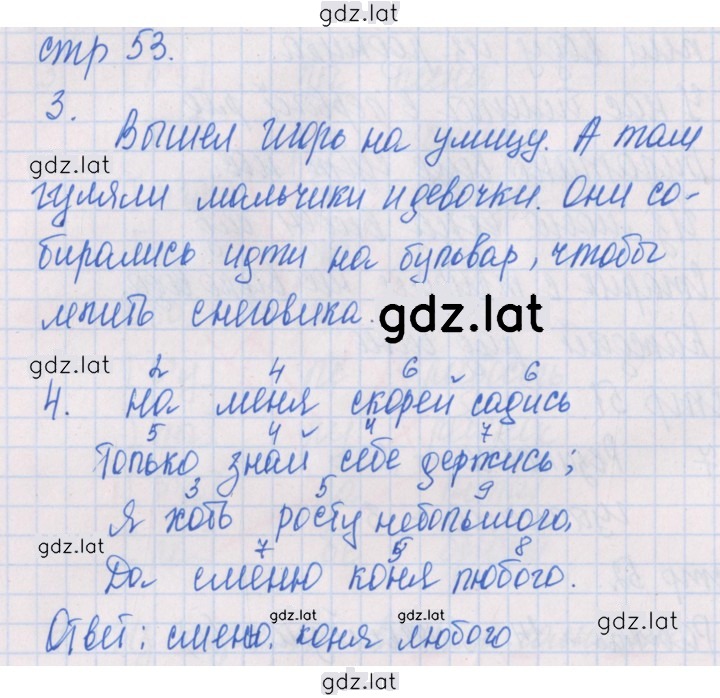 gdz.lat
стр 53.
3.
Вышел Игорь на улицу. А там
gdz.lat
гуляли мальчики и девочки. Они со-
бирались идти на бульвар, чтобы
лепить снеговика.
gdz.lat
gdz.lat
2 4 6 6
4. На меня скорей садись
5 4 4 7
Только знай себе держись;
3 5 9
Я хоть росту небольшого,
gdz.lat
7 5 8
Да сменю коня любого.
gdz.lat gdz.lat gdz.lat
Ответ: сменю, коня любого
gdz.lat